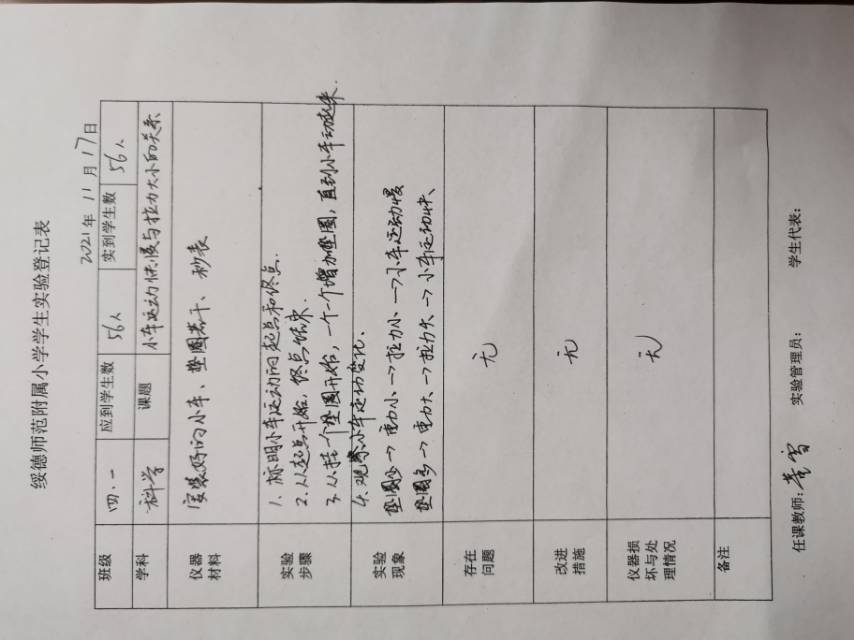 绥德师范附属小学学生实验登记表
2021年 11月 17日
班级 四.一 应到学生数 56人 实到学生数 56人
学科 科学 课题 小车运动快慢与拉力大小的关系
仪器材料 安装好的小车、垫圈若干、秒表
实验步骤
1. 标明小车运动的起点和终点.
2. 从起点开始,终点结束.
3. 从挂一个垫圈开始,一个一个增加垫圈,直到小车动起来.
4. 观察小车运动变化.
实验现象
垫圈少→重力小→拉力小→小车运动慢
垫圈多→重力大→拉力大→小车运动快、
存在问题 无
改进措施 无
仪器损坏与处理情况 无
备注
任课教师: 实验管理员: 学生代表: